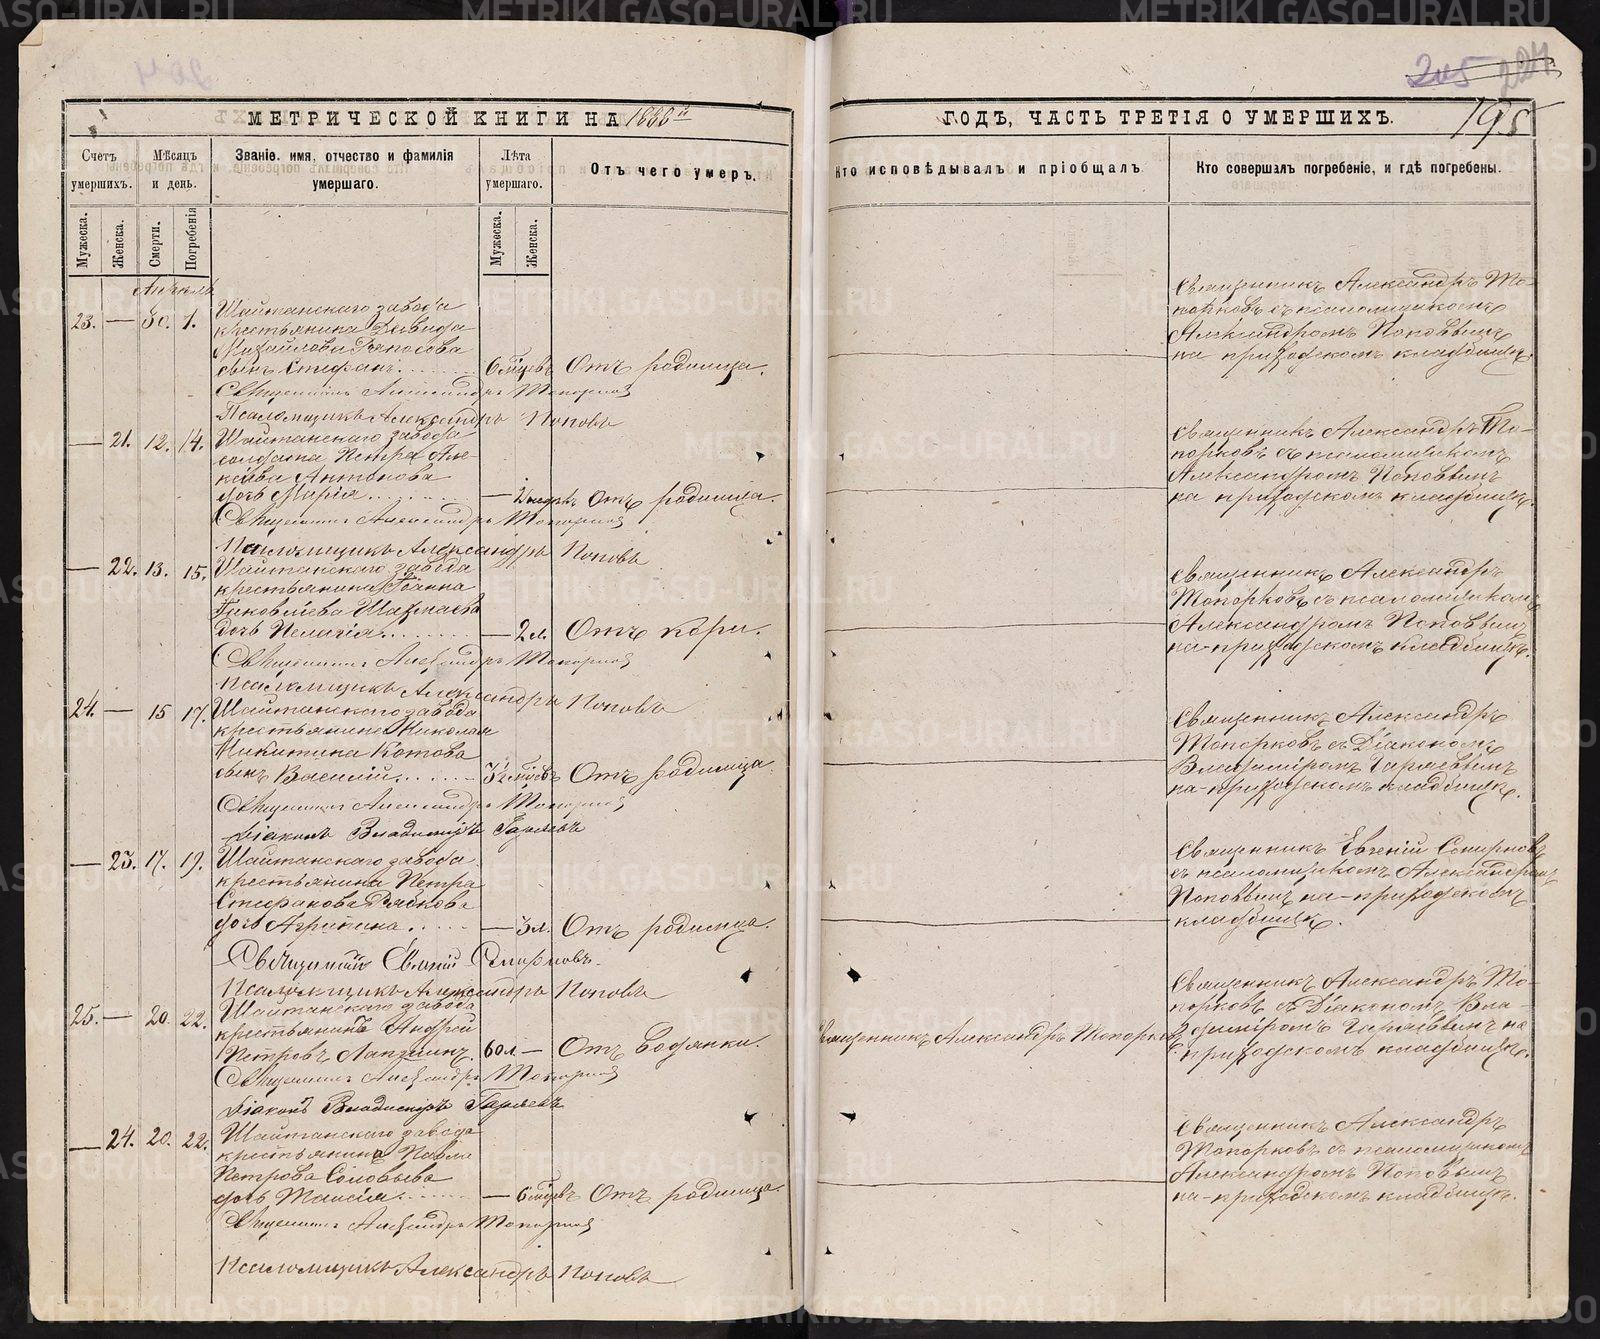 МЕТРИЧЕСКОЙ КНИГИ НА 1888й
ГОДЪ, ЧАСТЬ ТРЕТІЯ О УМЕРШИХЪ.
205
195
Счетъ умершихъ.
Мѣсяцъ и день.
Званіе. имя, отчество и фамилія умершаго.
Лѣта умершаго.
Отъ чего умеръ.
Кто исповѣдывалъ и пріобщалъ
Кто совершалъ погребеніе, и гдѣ погребены.
Мужеска.
Женска.
Смерти.
Погребенія
Мужеска.
Женска.
Апрѣль
23. — 30. 1.
Шайтанскаго завода
крестьянина Давида
Михайлова
сынъ Стефанъ
6 мцевъ
Отъ родимца.
Священникъ Александръ То-
порковъ съ псаломщикомъ
Александромъ Поповымъ
на приходскомъ кладбищѣ.
Священникъ Александръ Топорковъ
Псаломщикъ Александръ Поповъ
— 21. 12. 14.
Шайтанскаго завода
солдата Петра Але-
ксѣева Антонова
дочь Марія
— 2 недѣл.
Отъ родимца.
Священникъ Александръ То-
порковъ съ псаломщикомъ
Александромъ Поповымъ
на приходскомъ кладбищѣ.
Священникъ Александръ Топорковъ
Псаломщикъ Александръ Поповъ
— 22. 13. 15.
Шайтанскаго завода
крестьянина Іоанна
Іаковлева
дочь Пелагія
— 2 л.
Отъ кори.
Священникъ Александръ
Топорковъ съ псаломщикомъ
Александромъ Поповымъ
на приходскомъ кладбищѣ.
Священникъ Александръ Топорковъ
Псаломщикъ Александръ Поповъ
24. — 15 17.
Шайтанскаго завода
крестьянина Николая
Никитина Котова
сынъ Василій
Отъ родимца
Священникъ Александръ
Топорковъ съ Діакономъ
Владиміромъ Гаряевымъ
на приходскомъ кладбищѣ.
Священникъ Александръ Топорковъ
Діаконъ Владиміръ Гаряевъ
— 23. 17. 19.
Шайтанскаго завода
крестьянина Петра
Стефанова Рябкова
дочь Агрипина
— 3 л.
Отъ родимца.
Священникъ Евгеній Смирновъ
съ псаломщикомъ Александромъ
Поповымъ на приходскомъ
кладбищѣ.
Священникъ Евгеній Смирновъ
Псаломщикъ Александръ Поповъ
25. — 20. 22.
Шайтанскаго завода
крестьянинъ Андрей
Петровъ
60 л —
Отъ водянки.
Священникъ Александръ Топорковъ
Священникъ Александръ То-
порковъ съ Діакономъ Вла-
диміромъ Гаряевымъ на
приходскомъ кладбищѣ.
Священникъ Александръ Топорковъ
Діаконъ Владиміръ Гаряевъ
— 24. 20. 22.
Шайтанскаго завода
крестьянина Павла
Петрова Соловьева
дочь Таисія
— 6 мцевъ
Отъ родимца.
Священникъ Александръ
Топорковъ съ псаломщикомъ
Александромъ Поповымъ
на приходскомъ кладбищѣ.
Священникъ Александръ Топорковъ
Псаломщикъ Александръ Поповъ
METRIKI.GASO-URAL.RU